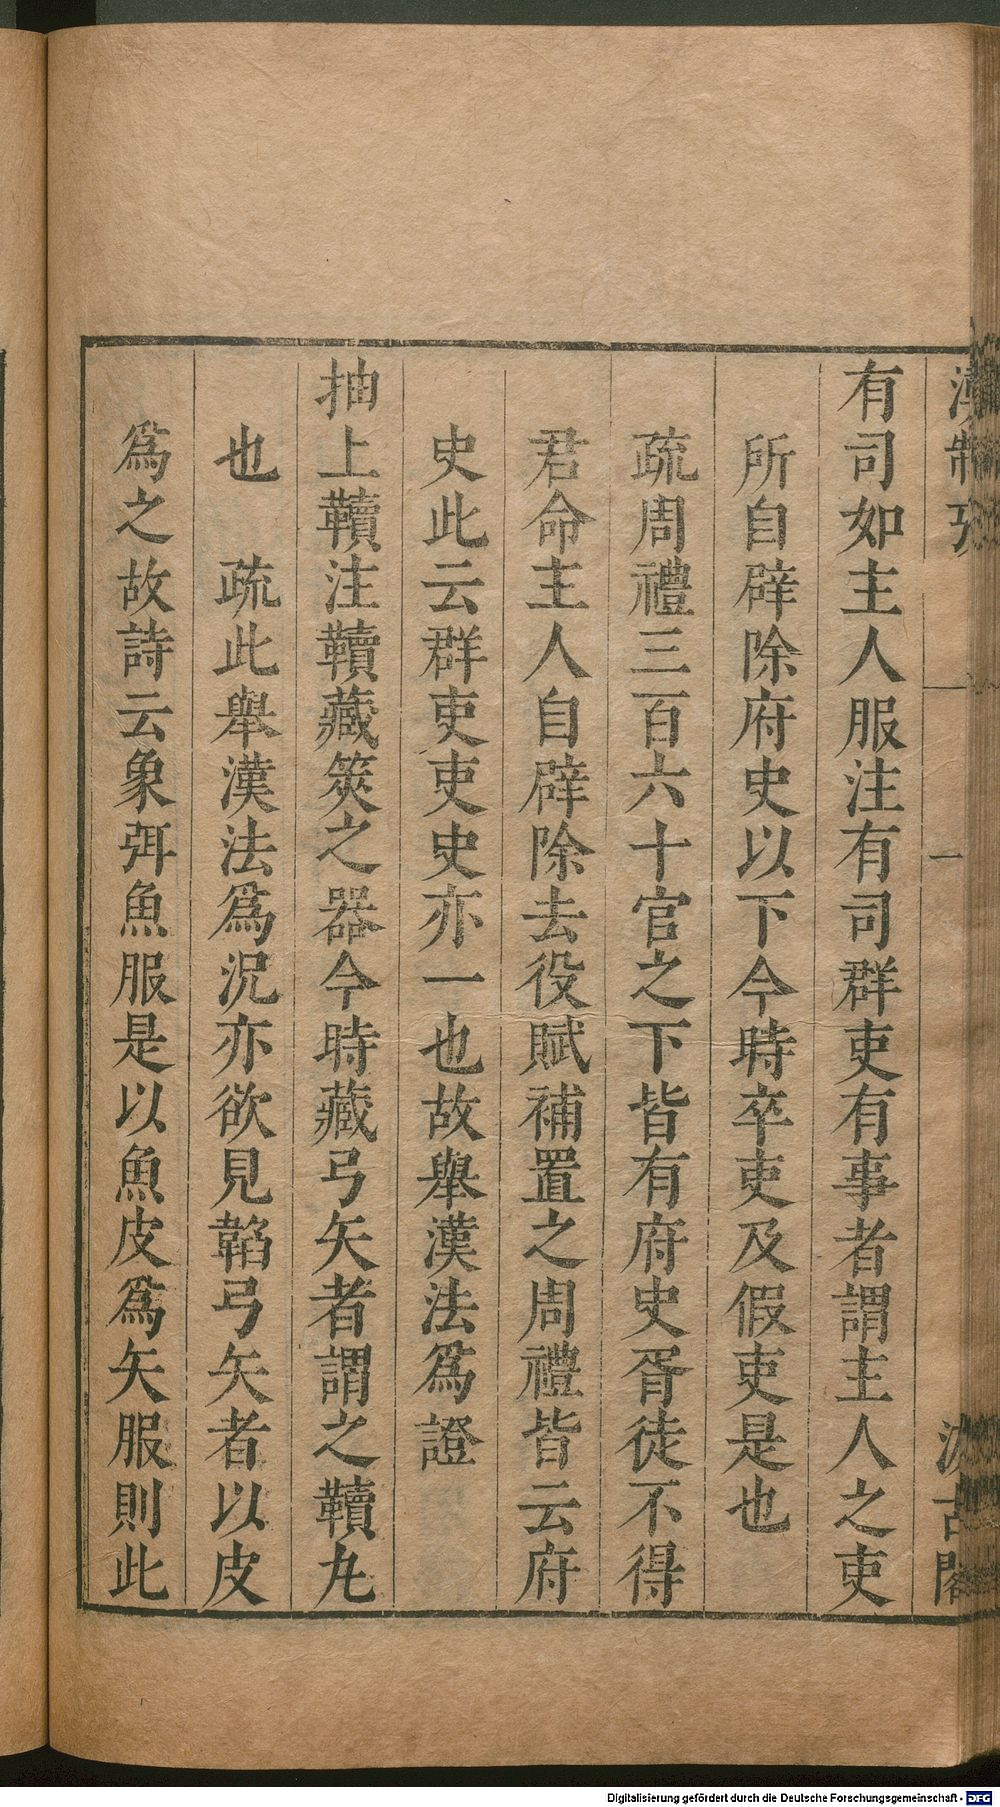 漢制攷
一
汲古閣
有司如主人服注有司群吏有事者謂主人之吏
所自辟除府史以下今時卒吏及假吏是也
疏周禮三百六十官之下皆有府史胥徒不得
君命主人自辟除去役賦補置之周禮皆云府
史此云群吏吏史亦一也故舉漢法爲證
抽上韇注韇藏筴之器今時藏弓矢者謂之韇丸
也　疏此舉漢法爲況亦欲見韜弓矢者以皮
爲之故詩云象弭魚服是以魚皮爲矢服則此
Digitalisierung gefördert durch die Deutsche Forschungsgemeinschaft - DFG